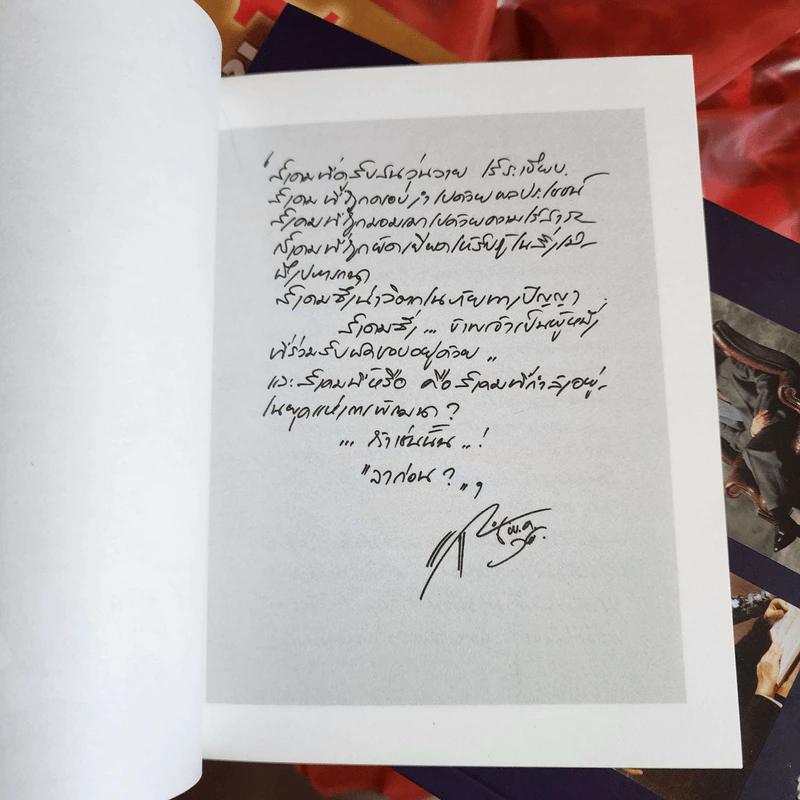 "สังคมที่ดูสับสนวุ่นวาย ไร้ระเบียบ.
สังคมที่ถูกครอบงำไปด้วยผลประโยชน์
สังคมที่ถูกมอมเมาไปด้วยความไร้สาระ
สังคมที่ถูกยัดเยียดให้รับรู้ในสิ่งไม่-
พึงปรารถนา
สังคมซึ่งน่าวิตกในภัยทางปัญญา
สังคมซึ่ง... ข้าพเจ้าเป็นผู้หนึ่ง
ที่ร่วมรับผิดชอบอยู่ด้วย..
และสังคมนี้หรือ คือสังคมที่กำลังอยู่-
ในยุคแห่งการพัฒนา?
... ถ้าเช่นนั้น..!
"ลาก่อน?"